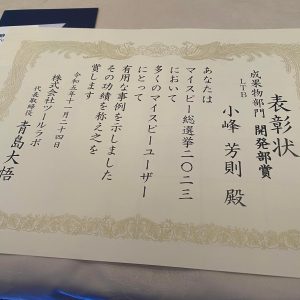 表彰状
成果物部門 開発部賞
LTB 小峰 芳則 殿
あなたは
マイスピー総選挙二〇二三
において
多くのマイスピーユーザー
にとって
有用な事例を示しました
その功績を称え之を
賞します
令和五年十一月二十四日
株式会社ツールラボ
代表取締役 青島大悟